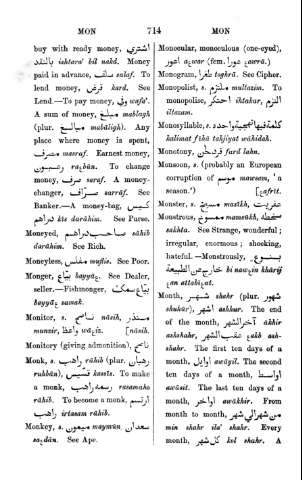 MON 714 MON
buy with ready money, اشتري
بالنقد ishtara' bil nakd. Money
paid in advance, سلف salaf. To
lend money, قرض kard. See
Lend.—To pay money, وفي wafa'.
A sum of money, مبلغ mablagh
(plur. مبالغ mabāligh). Any
place where money is spent,
مصرف masraf. Earnest money,
ربون raɛbūn. To change
money, صرف saraf. A money-
changer, صراف sarrāf. See
Banker.—A money-bag, كيس
دراهم kīs darāhim. See Purse.
Moneyed, صاحب دراهم sāhib
darāhim. See Rich.
Moneyless, مفلس muflis. See Poor.
Monger, بياع bayyāɛ. See Dealer,
seller.—Fishmonger, بياع سمك
bayyāɛ samak.
Monitor, s. ناصح nāsih, منذر
munzir, واعظ waɛiz. [nāsih.
Monitory (giving admonition), ناصح
Monk, s. راهب rāhib (plur. رهبان
ruhbān), قسيس kasīs. To make
a monk, رسمه راهب rasamaho
rāhib. To become a monk, ارتسم
راهب irtasam rāhib.
Monkey, s. ميمون maymūn, سعدان
saɛdān. See Ape.
Monocular, monoculous (one-eyed),
اعور aɛwar (fem. عورا ɛawrā).
Monogram, طغرا toghrā. See Cipher.
Monopolist, s. ملتزم multazim. To
monopolise, احتكر ihtakar, التزم
iltazam.
Monosyllable, s. كلمة فيها تهجية واحدة
kalimat fīha tahjīyat wahidah.
Monotony, فرد لحن fard lahn.
Monsoon, s. (probably an European
corruption of موسم mawsam, 'a
season.') [ɛafrīt.
Monster, s. مسخ maskh, عفريت
Monstrous, ممسوخ mamsūkh, سخطه
sakhta. See Strange, wonderful;
irregular, enormous; shocking,
hateful.—Monstrously, بنوع
خارج عن الطبيعة bi nawɛin khārij
ɛan attabīɛat.
Month, شهر shahr (plur. شهور
shuhūr), اشهر ashhur. The end
of the month, آخر الشهر ākhir
ashshahr, عقب الشهر ɛakb ash-
shahr. The first ten days of a
month, اوايل awāyil. The second
ten days of a month, اواسط
awāsit. The last ten days of a
month, اواخر awākhir. From
month to month, من شهر الي شهر
min shahr ila' shahr. Every
month, كل شهر kol shahr. A